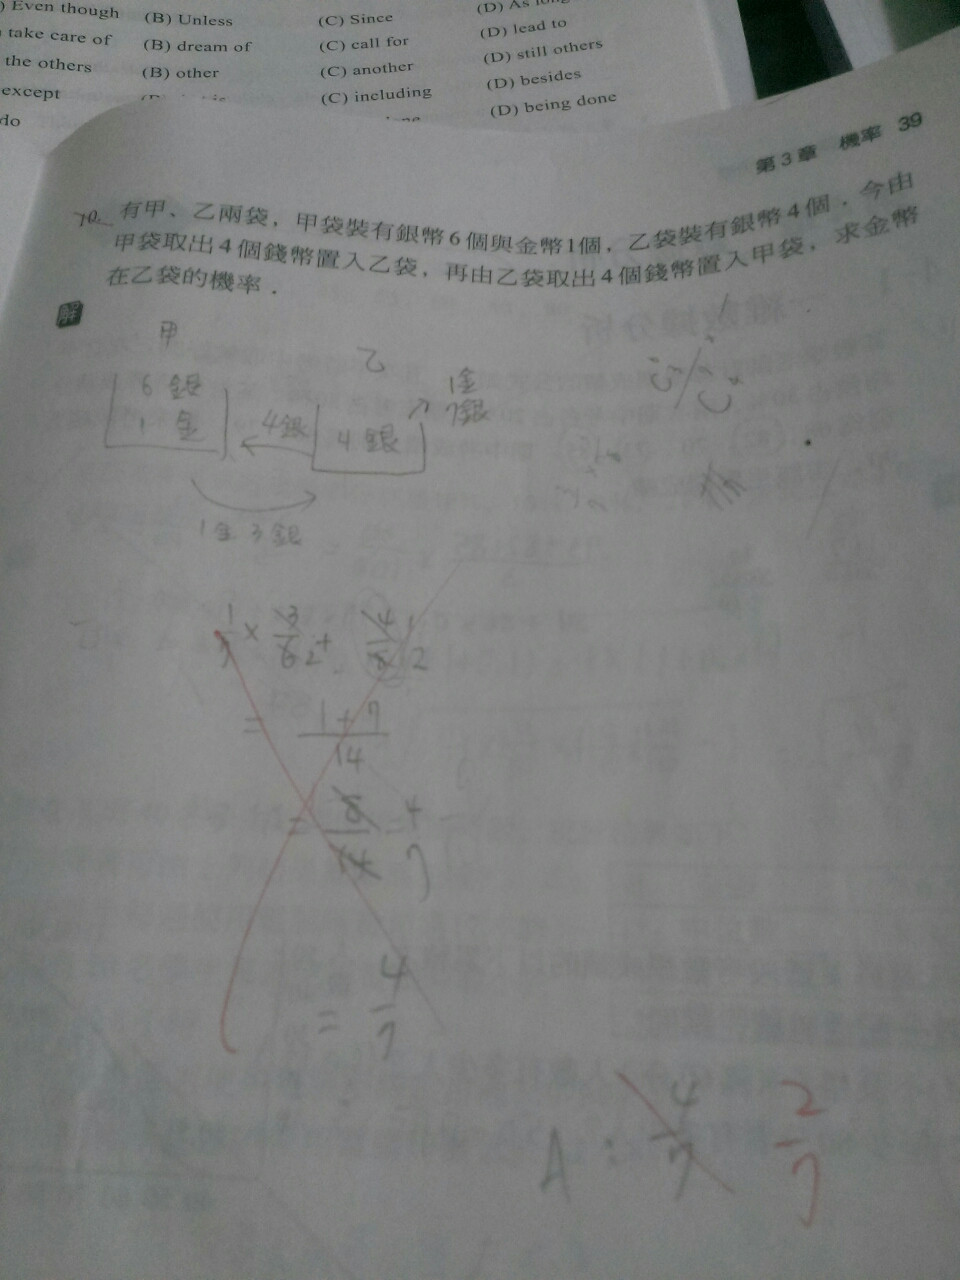 Even though (B) Unless (C) Since (D) As long
take care of (B) dream of (C) call for (D) lead to
the others (B) other (C) another (D) still others
except (C) including (D) besides
do (D) being done
第3章 機率 39
10. 有甲、乙兩袋，甲袋裝有銀幣6個與金幣1個，乙袋裝有銀幣4個．今由
甲袋取出4個錢幣置入乙袋，再由乙袋取出4個錢幣置入甲袋，求金幣
在乙袋的機率．
解
甲
乙
6 銀
1 金
4銀
4 銀
1金
7銀
1金3銀
1/7 × 3/6 2 + 4/8 1 2
= 1+7/14
= 8/14 = 4/7
= 4/7
A : 4/7 2/7